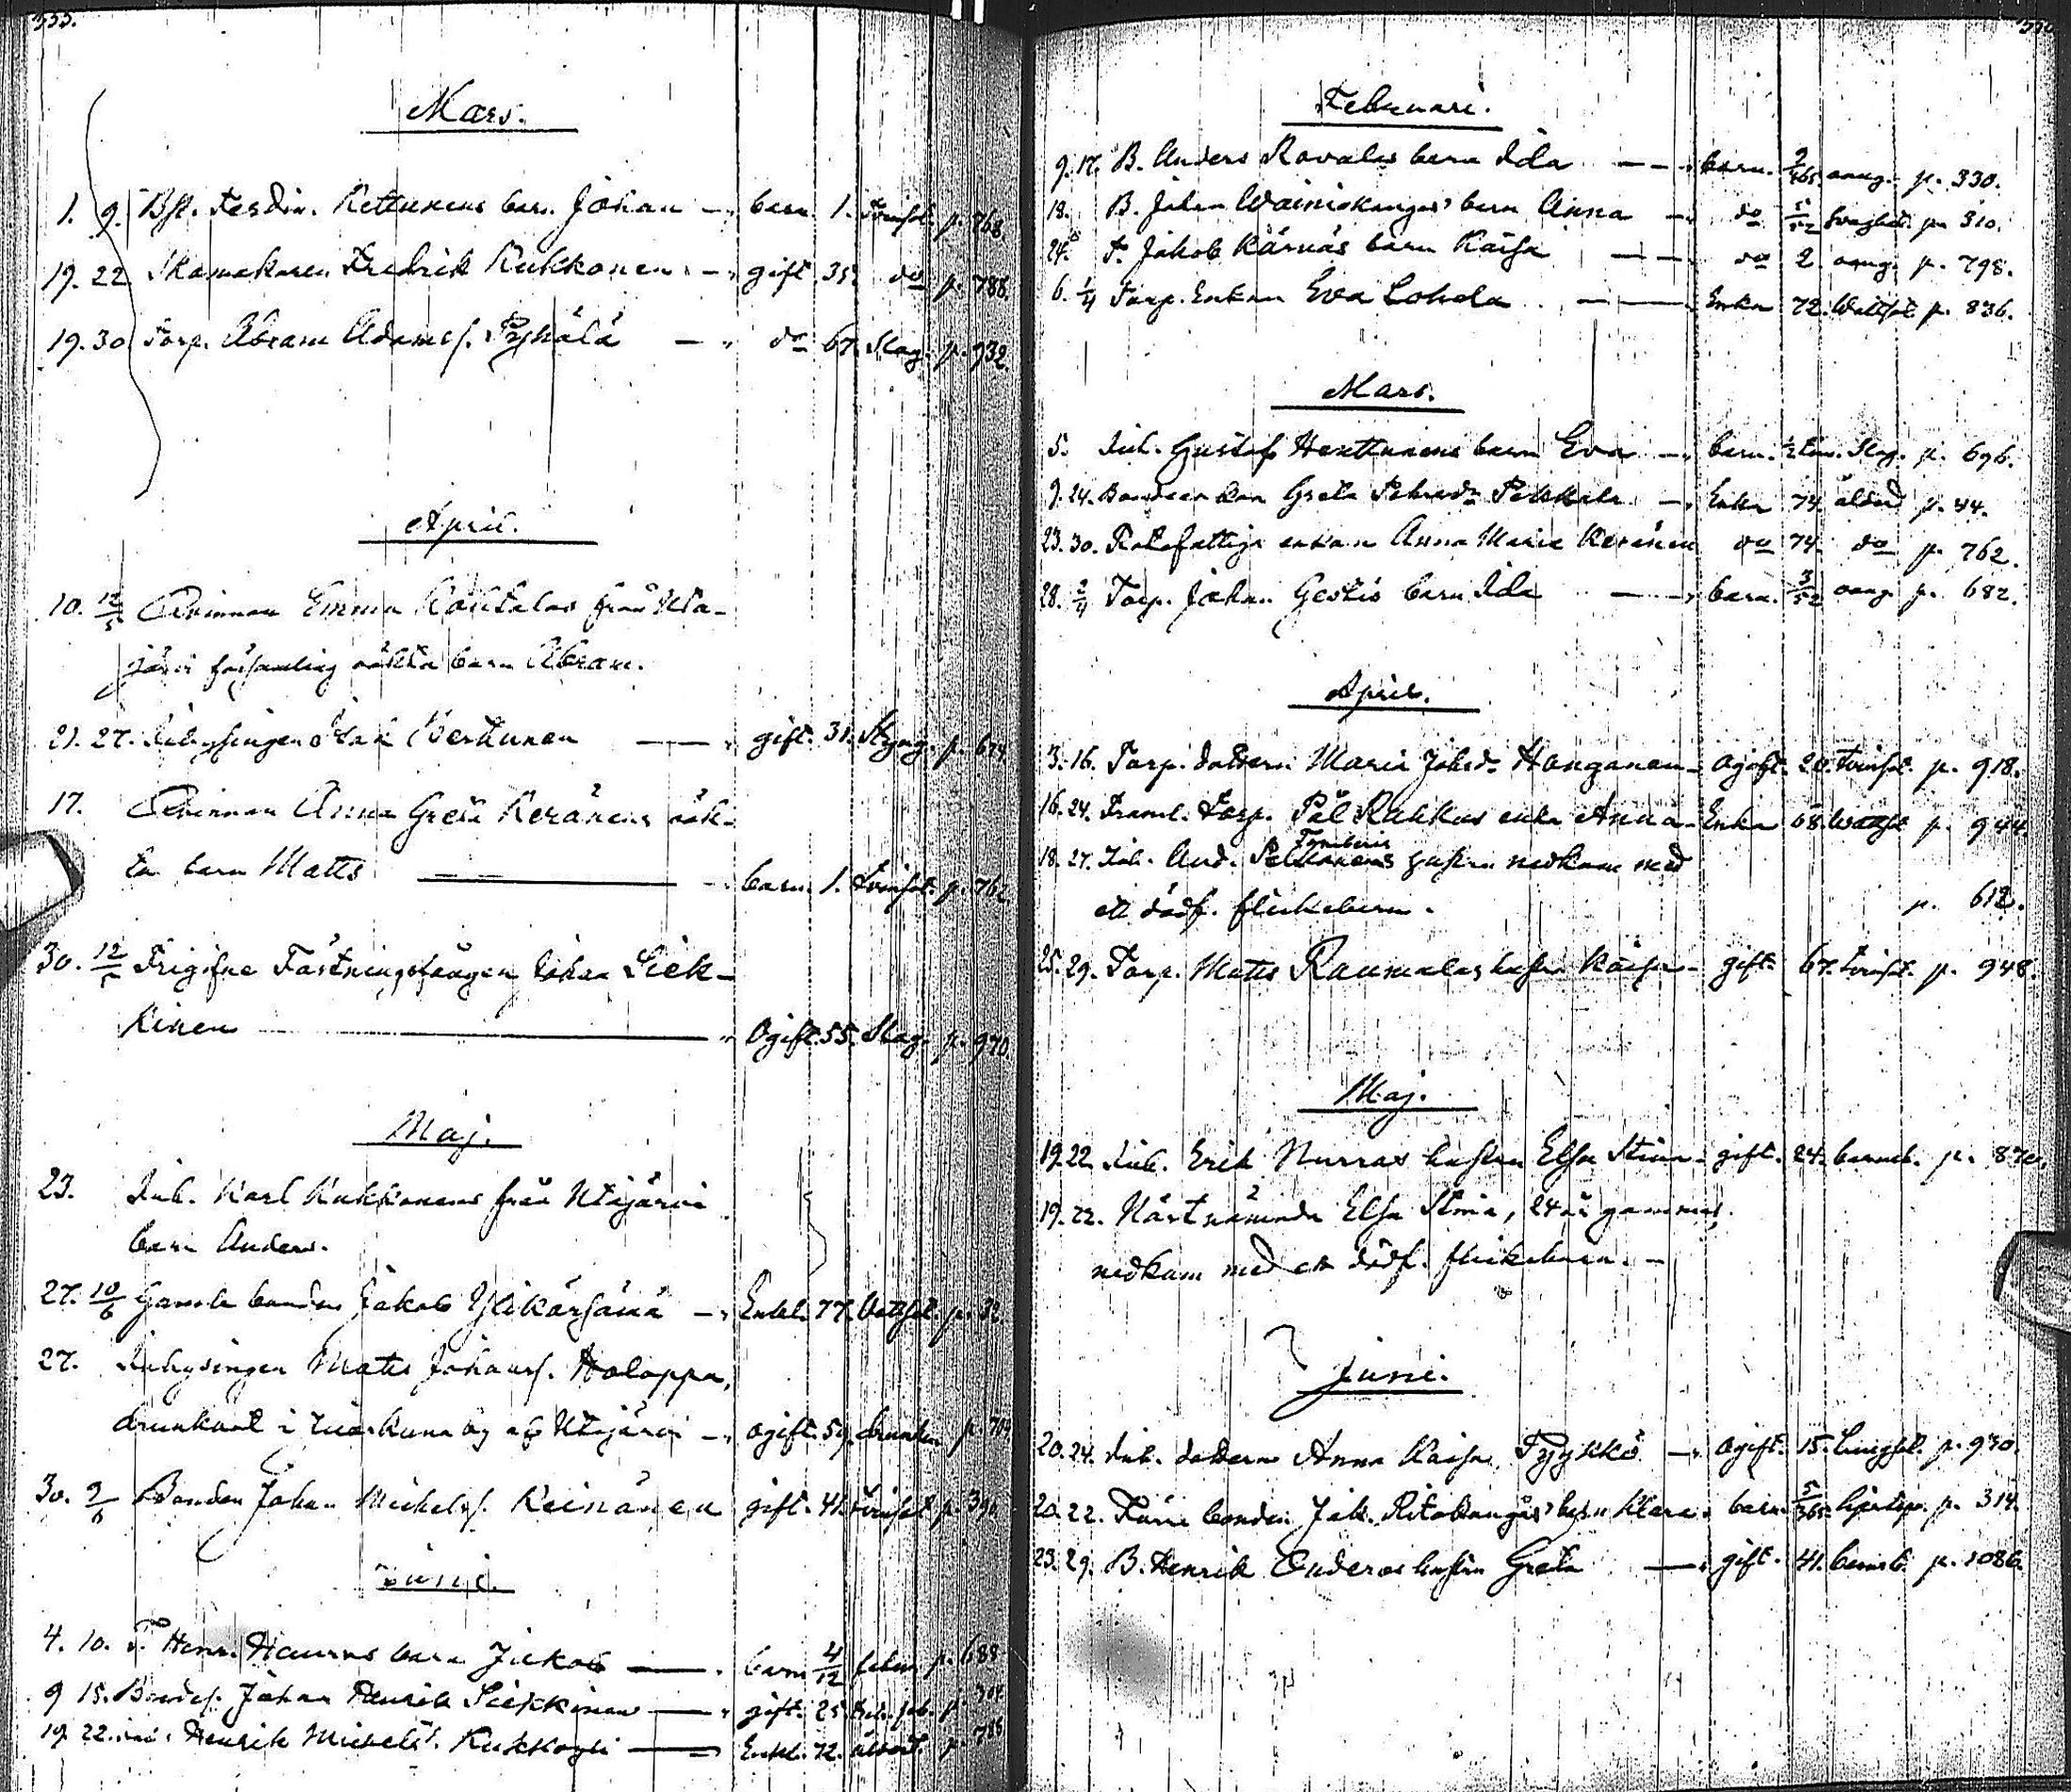 333.
Mars.
1. 9. Bs. Ferdin. Kettunens barn Johan — barn 1. Tvinsot. p. 768.
19. 22 Skomakaren Fredrik Kukkonen — gift 35. do p. 788.
19. 30 Torp. Abram Adamss. Pyhälä — do 67. Slag. p. 932.
April.
10. 12/5 Qvinnan Emma Rautalas från Uta-
järvi församling oäkta barn Abram.
21. 27. Inhysingen Isak Kerttunen — gift. 31. p.
17. Qvinnan Anna Greta Keränens oäk-
ta barn Matts — barn 1. Tvinsot. p. 762
30. 12/5 Frigifne Fästningsfången Johan Siek-
kinen — Ogift. 55. Slag. p. 970.
Maj.
23. Inh. Karl Kukkonens från Utajärvi
barn Anders.
27. 10/6 Gamle bonden Jakob Ylikärsämä — Enkl. 77. Vattsot. p. 32.
27. Inhysingen Matts Johanss. Holappa,
drunknat i Utajärvi — ogift. 59. drunkn. p.
30. 9/6 Bonden Johan Michelss. Keinänen gift. 41. Tvinsot p. 390
Juni.
4. 10. T. Henr. Haurus barn Jakob — barn 4/12 feber p. 688
9 15. Bondes. Johan Henrik Siekkinen — gift. 25 p. 304.
19. 22. Inh. Henrik Michelss. Kukkohovi — Enkl. 72. ålderd. p. 788
Februari.
9. 17. B. Anders Rovalas barn Ida — barn. 9/365 oang. p. 330.
18. B. Johan Wainiokangas' barn Anna — do 5/52 Svaghet. p. 310.
24. T. Jakob Kärnäs barn Kaisa — do 2 oang. p. 798.
6. 1/4 Torp. Enkan Eva Lohela — Enka 72. Wattsot. p. 836.
Mars.
5. Inh. Gustaf Herttunens barn Eva — barn. Slag. p. 696.
9. 24. Bondeenkan Greta Pekkala — Enka 74. ålderd p. 44.
23. 30. Rotefattiga enkan Anna Maria Keränen do 74. do p. 762.
28. 2/4 Torp. Johan Gestis barn Ida — barn. 3/52 oang p. 682.
April.
3. 16. Torp. dottern Maria Johsdr Honganen — ogift. 20. Tvinsot. p. 918.
16. 24. Framl. Torp. Pål Rukkus enka Anna — Enka 68. Wattsot p. 944.
18. 27. Inh. And. Pekkonens hustru nedkom med
ett dödf. flickebarn. p. 612.
25. 29. Torp. Matts Raumalas hustru Kaisa — gift. 67. Tvinsot. p. 948.
Maj.
19. 22. Inh. Erik Nurras hustru Elsa Stina — gift. 24. barnsb. p. 870.
19. 22. Näst nämnda Elsa Stina, 24 år gammal,
nedkom med ett dödf. flickebarn. —
Juni.
20. 24. Inh. dottern Anna Kaisa Tyykkö — ogift. 15. Lungsot. p. 930.
20. 22. bonden Jak. Ritokangas' barn Klara barn 5/365 p. 314.
23. 29. B. Henrik Onderos hustru Greta — gift. 41. barnsb. p. 1086.